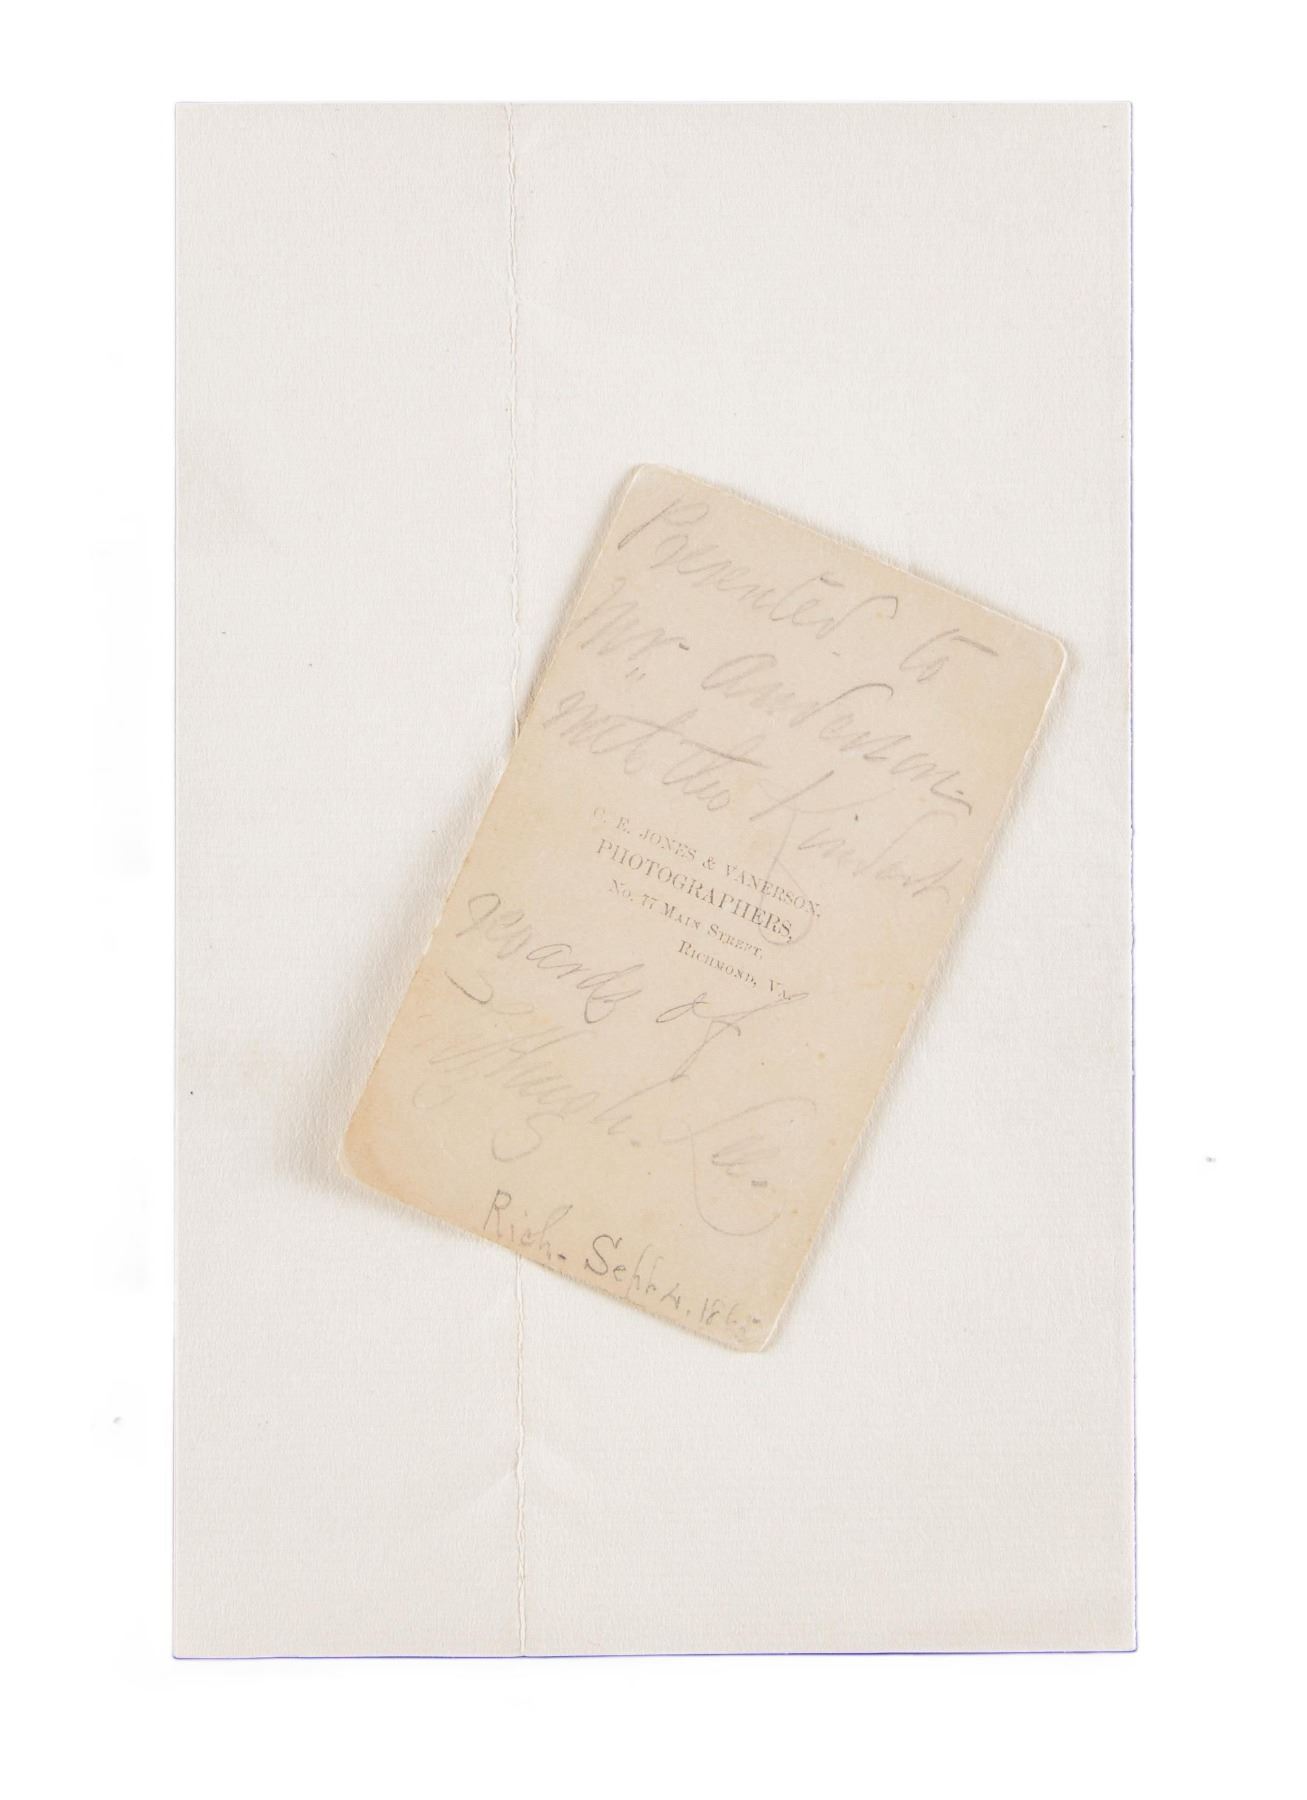 Presented to
Mr. Anderson
with the Kindest
C. E. JONES & VANERSON,
PHOTOGRAPHERS,
No. 77 MAIN STREET,
RICHMOND, VA.
regards of
Hugh. Lee.
Rich. Sept 4. 1865